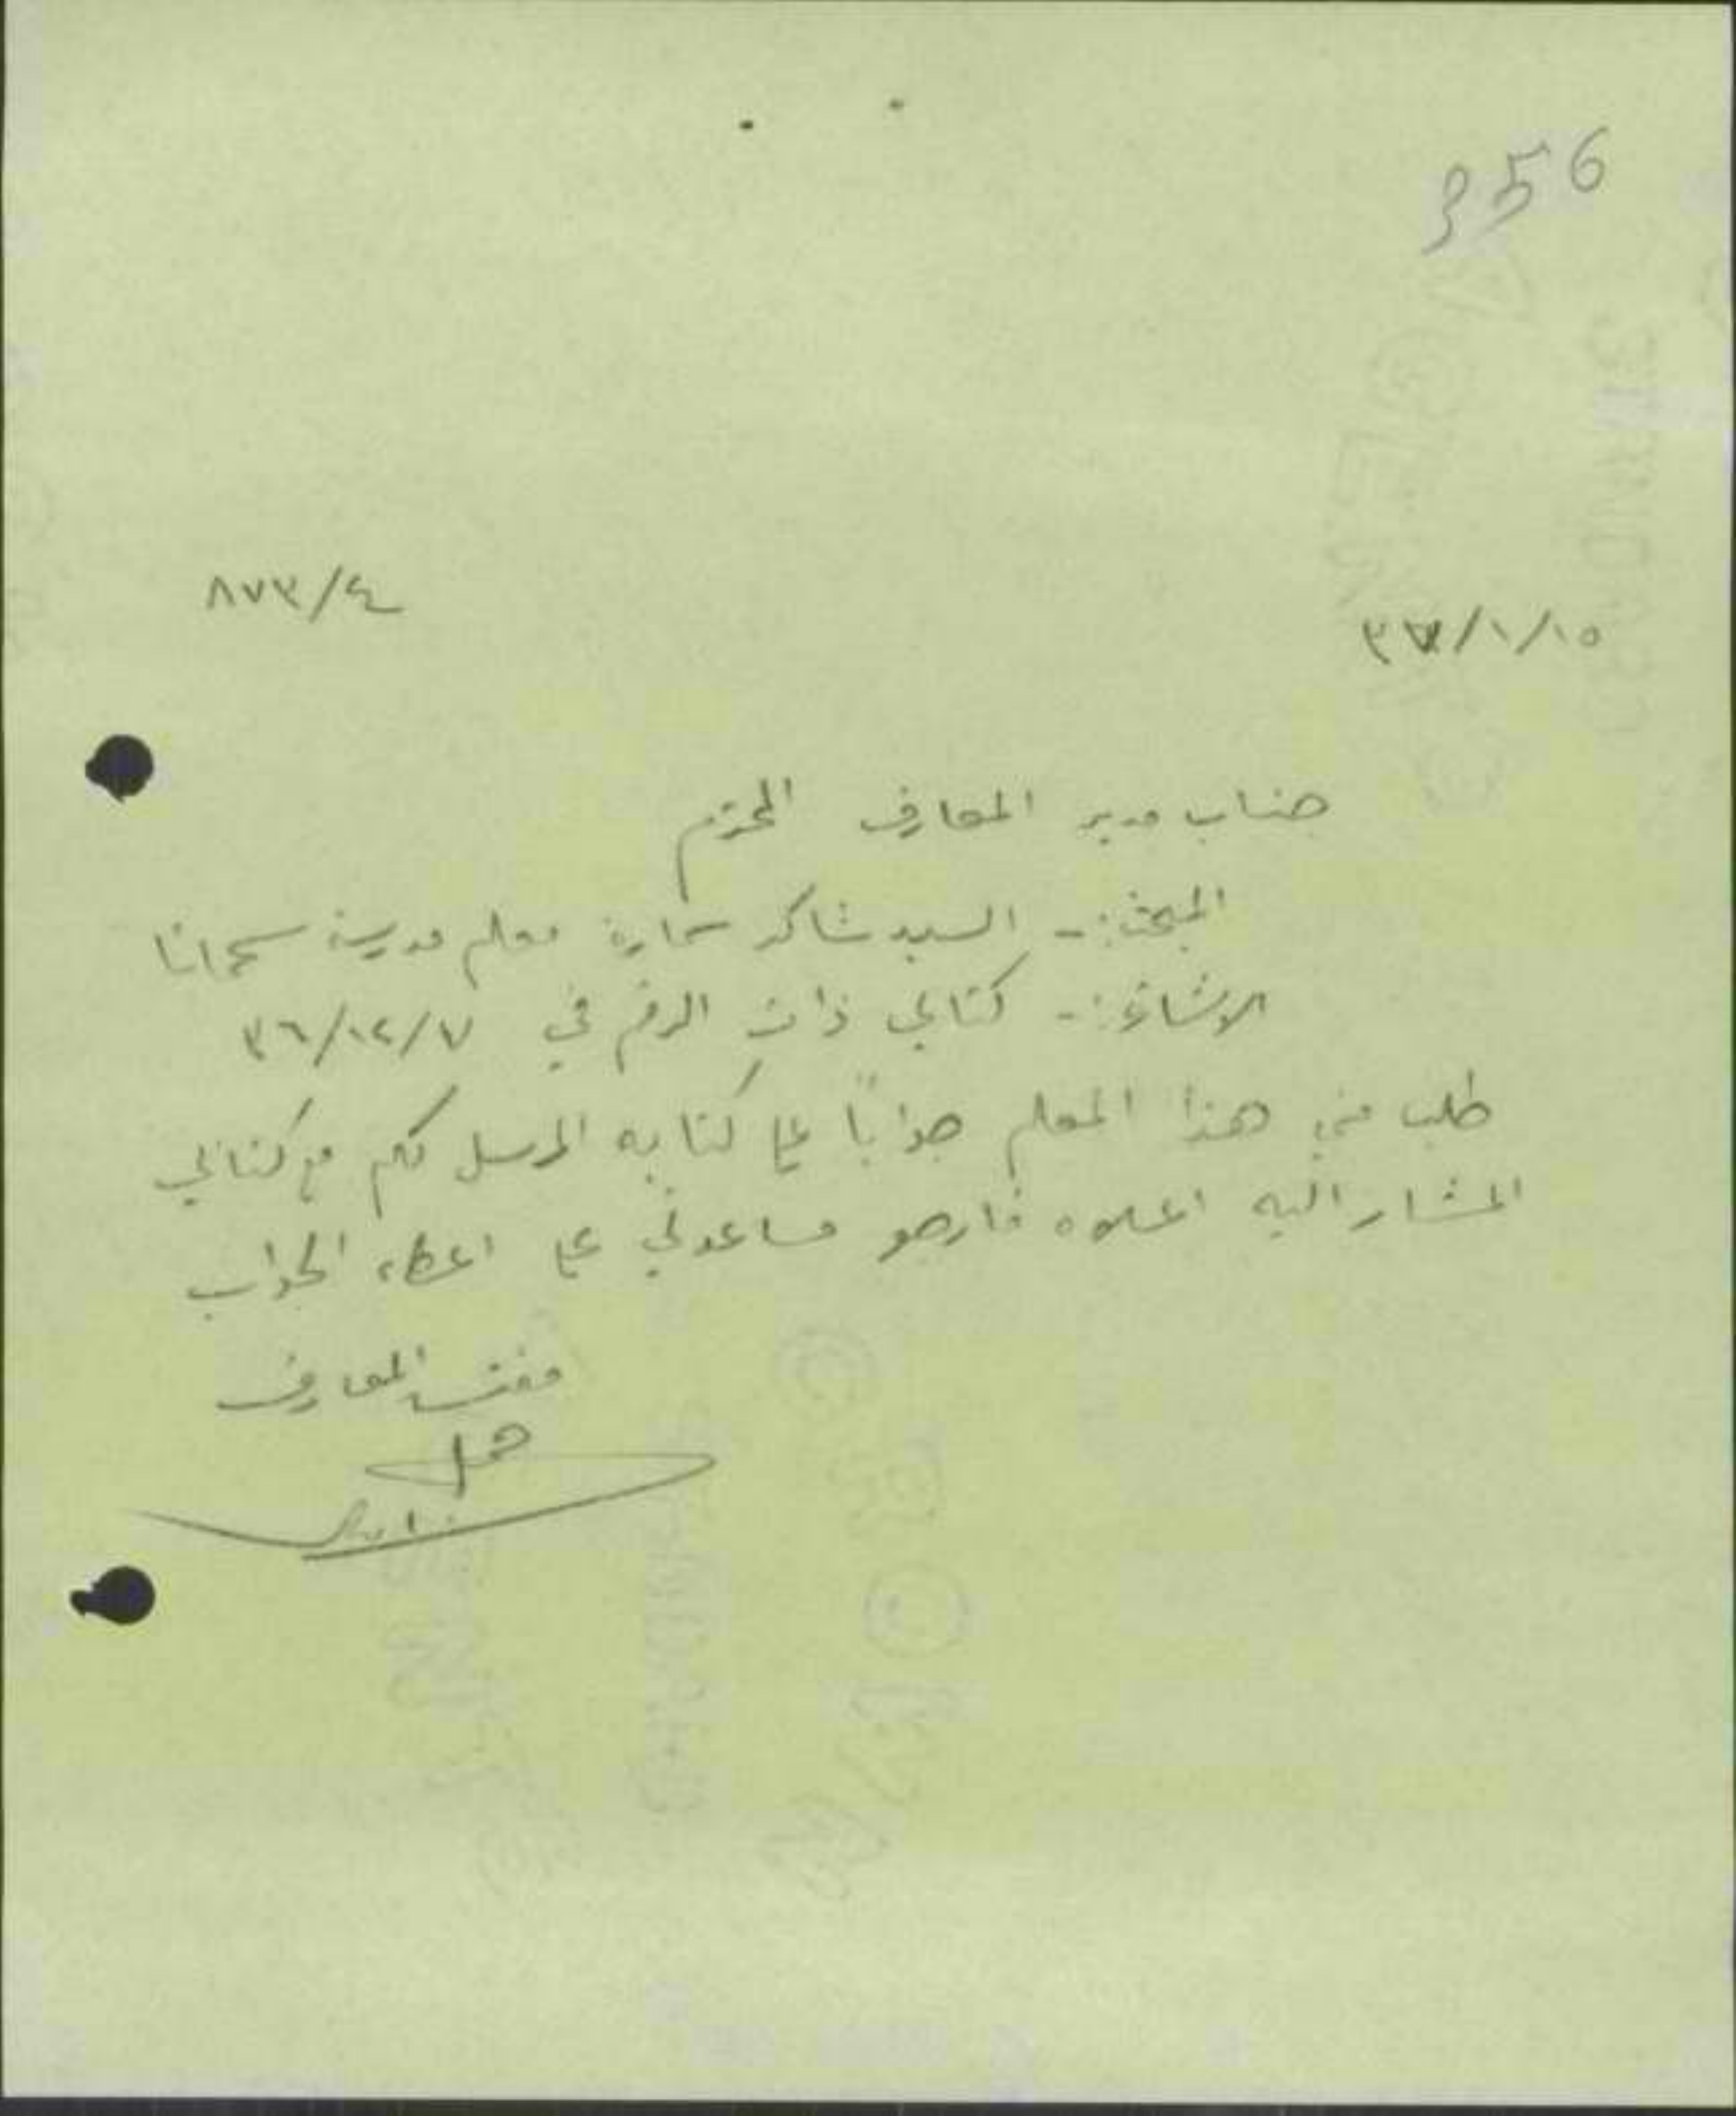 356
٨٧٣/٤
٣٧/١/١٥
جناب مدير المعارف المحترم
المبحث:- السيد شاكر سمارة معلم مدرسة سحماتا
الاشارة:- كتابي ذات الرقم في ٣٦/١٢/٧
طلب مني هذا المعلم جواباً على كتابه المرسل لكم مع كتابي
المشار اليه اعلاه فارجو مساعدتي على اعطاء الجواب
مفتش المعارف